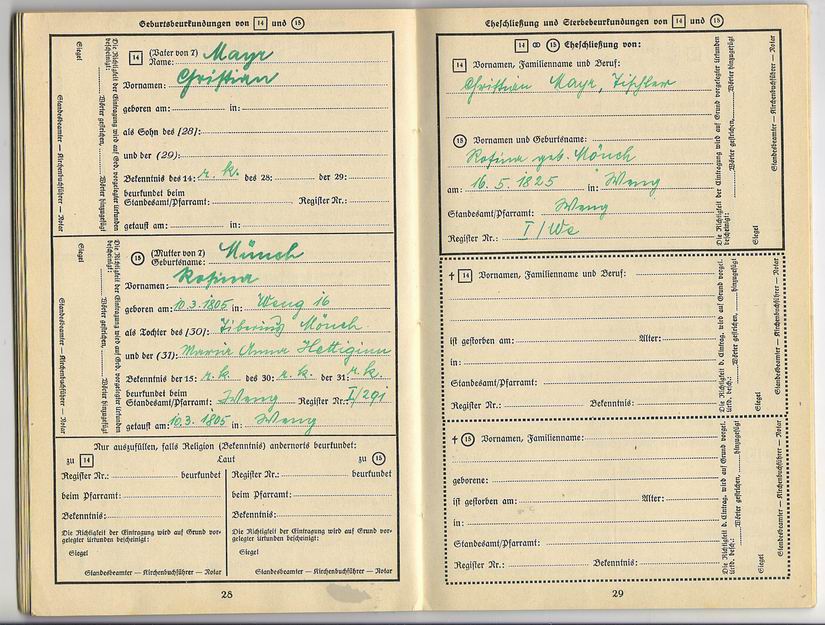 Geburtsbeurkundungen von 14 und 15
14 (Vater von 7) Name: Mayr
Vornamen: Christian
geboren am: in:
als Sohn des [28]:
und der (29):
Bekenntnis des 14: r. k. des 28: der 29:
beurkundet beim
Standesamt/Pfarramt: Register Nr.:
getauft am: in:
Die Richtigkeit der Eintragung wird auf Grd. vorgelegter Urkunden
bescheinigt:
Wörter gestrichen, Wörter hinzugefügt
Standesbeamter — Kirchenbuchführer — Notar
Siegel
15 (Mutter von 7)
Geburtsname: Münch
Vornamen: Rosina
geboren am: 10.3.1805 in: Weng 16
als Tochter des [30]: Tiberius Mönch
und der (31): Maria Anna Hettiginn
Bekenntnis der 15: r. k. des 30: r. k. der 31: r. k.
beurkundet beim
Standesamt/Pfarramt: Weng Register Nr.: I/291
getauft am: 10.3.1805 in: Weng
Die Richtigkeit der Eintragung wird auf Grd. vorgelegter Urkunden
bescheinigt:
Wörter gestrichen, Wörter hinzugefügt
Standesbeamter — Kirchenbuchführer — Notar
Siegel
Nur auszufüllen, falls Religion (Bekenntnis) anderorts beurkundet:
zu 14 Laut zu 15
Register Nr.: beurkundet
beim Pfarramt:
Bekenntnis:
Die Richtigkeit der Eintragung wird auf Grund vor-
gelegter Urkunden bescheinigt:
Siegel
Standesbeamter — Kirchenbuchführer — Notar
Register Nr.: beurkundet
beim Pfarramt:
Bekenntnis:
Die Richtigkeit der Eintragung wird auf Grund vor-
gelegter Urkunden bescheinigt:
Siegel
Standesbeamter — Kirchenbuchführer — Notar
28
Eheschließung und Sterbebeurkundungen von 14 und 15
14 ∞ 15 Eheschließung von:
14 Vornamen, Familienname und Beruf:
Christian Mayr, Tischler
15 Vornamen und Geburtsname:
Rosina geb. Mönch
am: 16. 5. 1825 in: Weng
Standesamt/Pfarramt: Weng
Register Nr.: I/We
Die Richtigkeit der Eintragung wird auf Grund vorgelegter Urkunden
bescheinigt:
Wörter gestrichen, Wörter hinzugefügt
Standesbeamter — Kirchenbuchführer — Notar
Siegel
† 14 Vornamen, Familienname und Beruf:
ist gestorben am: Alter:
in:
Standesamt/Pfarramt:
Register Nr.: Bekenntnis:
Die Richtigkeit d. Eintrag. wird auf Grund vorgel.
Urkd. besch.:
Wörter gestrichen, Wörter hinzugefügt
Standesbeamter — Kirchenbuchführer — Notar
Siegel
† 15 Vornamen, Familienname:
geborene:
ist gestorben am: Alter:
in:
Standesamt/Pfarramt:
Register Nr.: Bekenntnis:
Die Richtigkeit d. Eintrag. wird auf Grund vorgel.
Urkd. besch.:
Wörter gestrichen, Wörter hinzugefügt
Standesbeamter — Kirchenbuchführer — Notar
Siegel
29